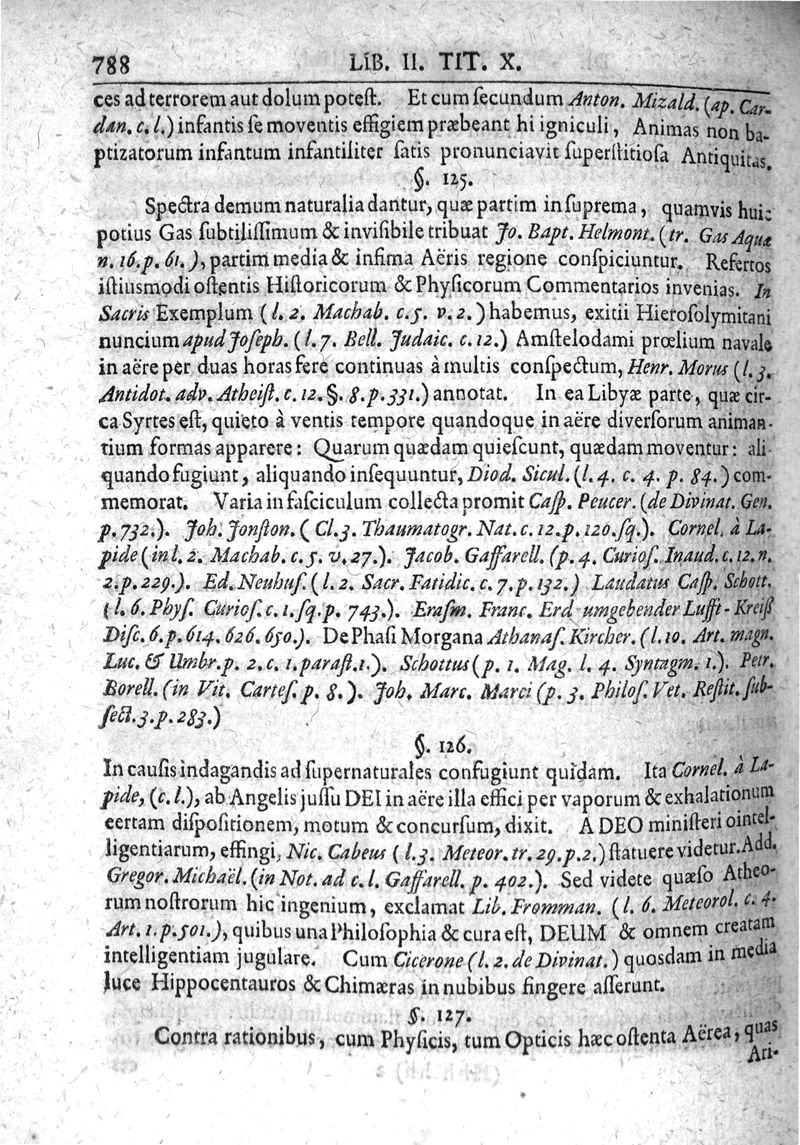 788 LIB. II. TIT. X.
ces ad terrorem aut dolum poteſt. Et cum ſecundum Anton. Mizald. (ap. Car-
dan. c. l.) infantis ſe moventis effigiem præbeant hi igniculi, Animas non ba-
ptizatorum infantum infantiliter ſatis pronunciavit ſuperſtitioſa Antiquitas.
§. 125.
Spectra demum naturalia dantur, quæ partim in ſuprema, quamvis huic
potius Gas ſubtiliſſimum & inviſibile tribuat Jo. Bapt. Helmont. (tr. Gas Aquæ
n. 16. p. 61.), partim media & infima Aëris regione conſpiciuntur. Refertos
iſtiusmodi oſtentis Hiſtoricorum & Phyſicorum Commentarios invenias. In
Sacris Exemplum (l. 2. Machab. c. 5. v. 2.) habemus, exitii Hieroſolymitani
nuncium apud Joſeph. (l. 7. Bell. Judaic. c. 12.) Amſtelodami prœlium navale
in aëre per duas horas fere continuas à multis conſpectum, Henr. Morus (l. 3.
Antidot. adv. Atheiſt. c. 12. §. 8. p. 331.) annotat. In ea Libyæ parte, quæ cir-
ca Syrtes eſt, quieto à ventis tempore quandoque in aëre diverſorum animan-
tium formas apparere: Quarum quædam quieſcunt, quædam moventur: ali-
quando fugiunt, aliquando inſequuntur, Diod. Sicul. (l. 4. c. 4. p. 84.) com-
memorat. Varia in faſciculum collecta promit Caſp. Peucer. (de Divinat. Gen.
p. 732.). Joh. Jonſton. (Cl. 3. Thaumatogr. Nat. c. 12. p. 120. ſq.). Cornel. à La-
pide (in l. 2. Machab. c. 5. v. 27.). Jacob. Gaffarell. (p. 4. Curioſ. Inaud. c. 12. n.
2. p. 229.). Ed. Neuhuſ. (l. 2. Sacr. Fatidic. c. 7. p. 132.) Laudatus Caſp. Schott.
(l. 6. Phyſ. Curioſ. c. 1. ſq. p. 743.). Eraſm. Franc. Erd umgebender Lufft-Kreiß
Diſc. 6. p. 614. 626. 650.). De Phaſi Morgana Athanaſ. Kircher. (l. 10. Art. magn.
Luc. & Umbr. p. 2. c. 1. paraſt. 1.). Schottus (p. 1. Mag. l. 4. Syntagm. 1.). Petr.
Borell. (in Vit. Carteſ. p. 8.). Joh. Marc. Marci (p. 3. Philoſ. Vet. Reſtit. ſub-
ſect. 3. p. 283.)
§. 126.
In cauſis indagandis ad ſupernaturales confugiunt quidam. Ita Cornel. à La-
pide, (c. l.), ab Angelis juſſu DEI in aëre illa effici per vaporum & exhalationum
certam diſpoſitionem, motum & concurſum, dixit. A DEO miniſteri ointel-
ligentiarum, effingi, Nic. Cabeus (l. 3. Meteor. tr. 29. p. 2.) ſtatuere videtur. Add.
Gregor. Michaël. (in Not. ad c. l. Gaffarell. p. 402.). Sed videte quæſo Atheo-
rum noſtrorum hic ingenium, exclamat Lib. Fromman. (l. 6. Meteorol. c. 4.
Art. 1. p. 501.), quibus una Philoſophia & cura eſt, DEUM & omnem creatam
intelligentiam jugulare. Cum Cicerone (l. 2. de Divinat.) quosdam in media
luce Hippocentauros & Chimæras in nubibus fingere aſſerunt.
§. 127.
Contra rationibus, cum Phyſicis, tum Opticis hæc oſtenta Aërea, quas
Ari-